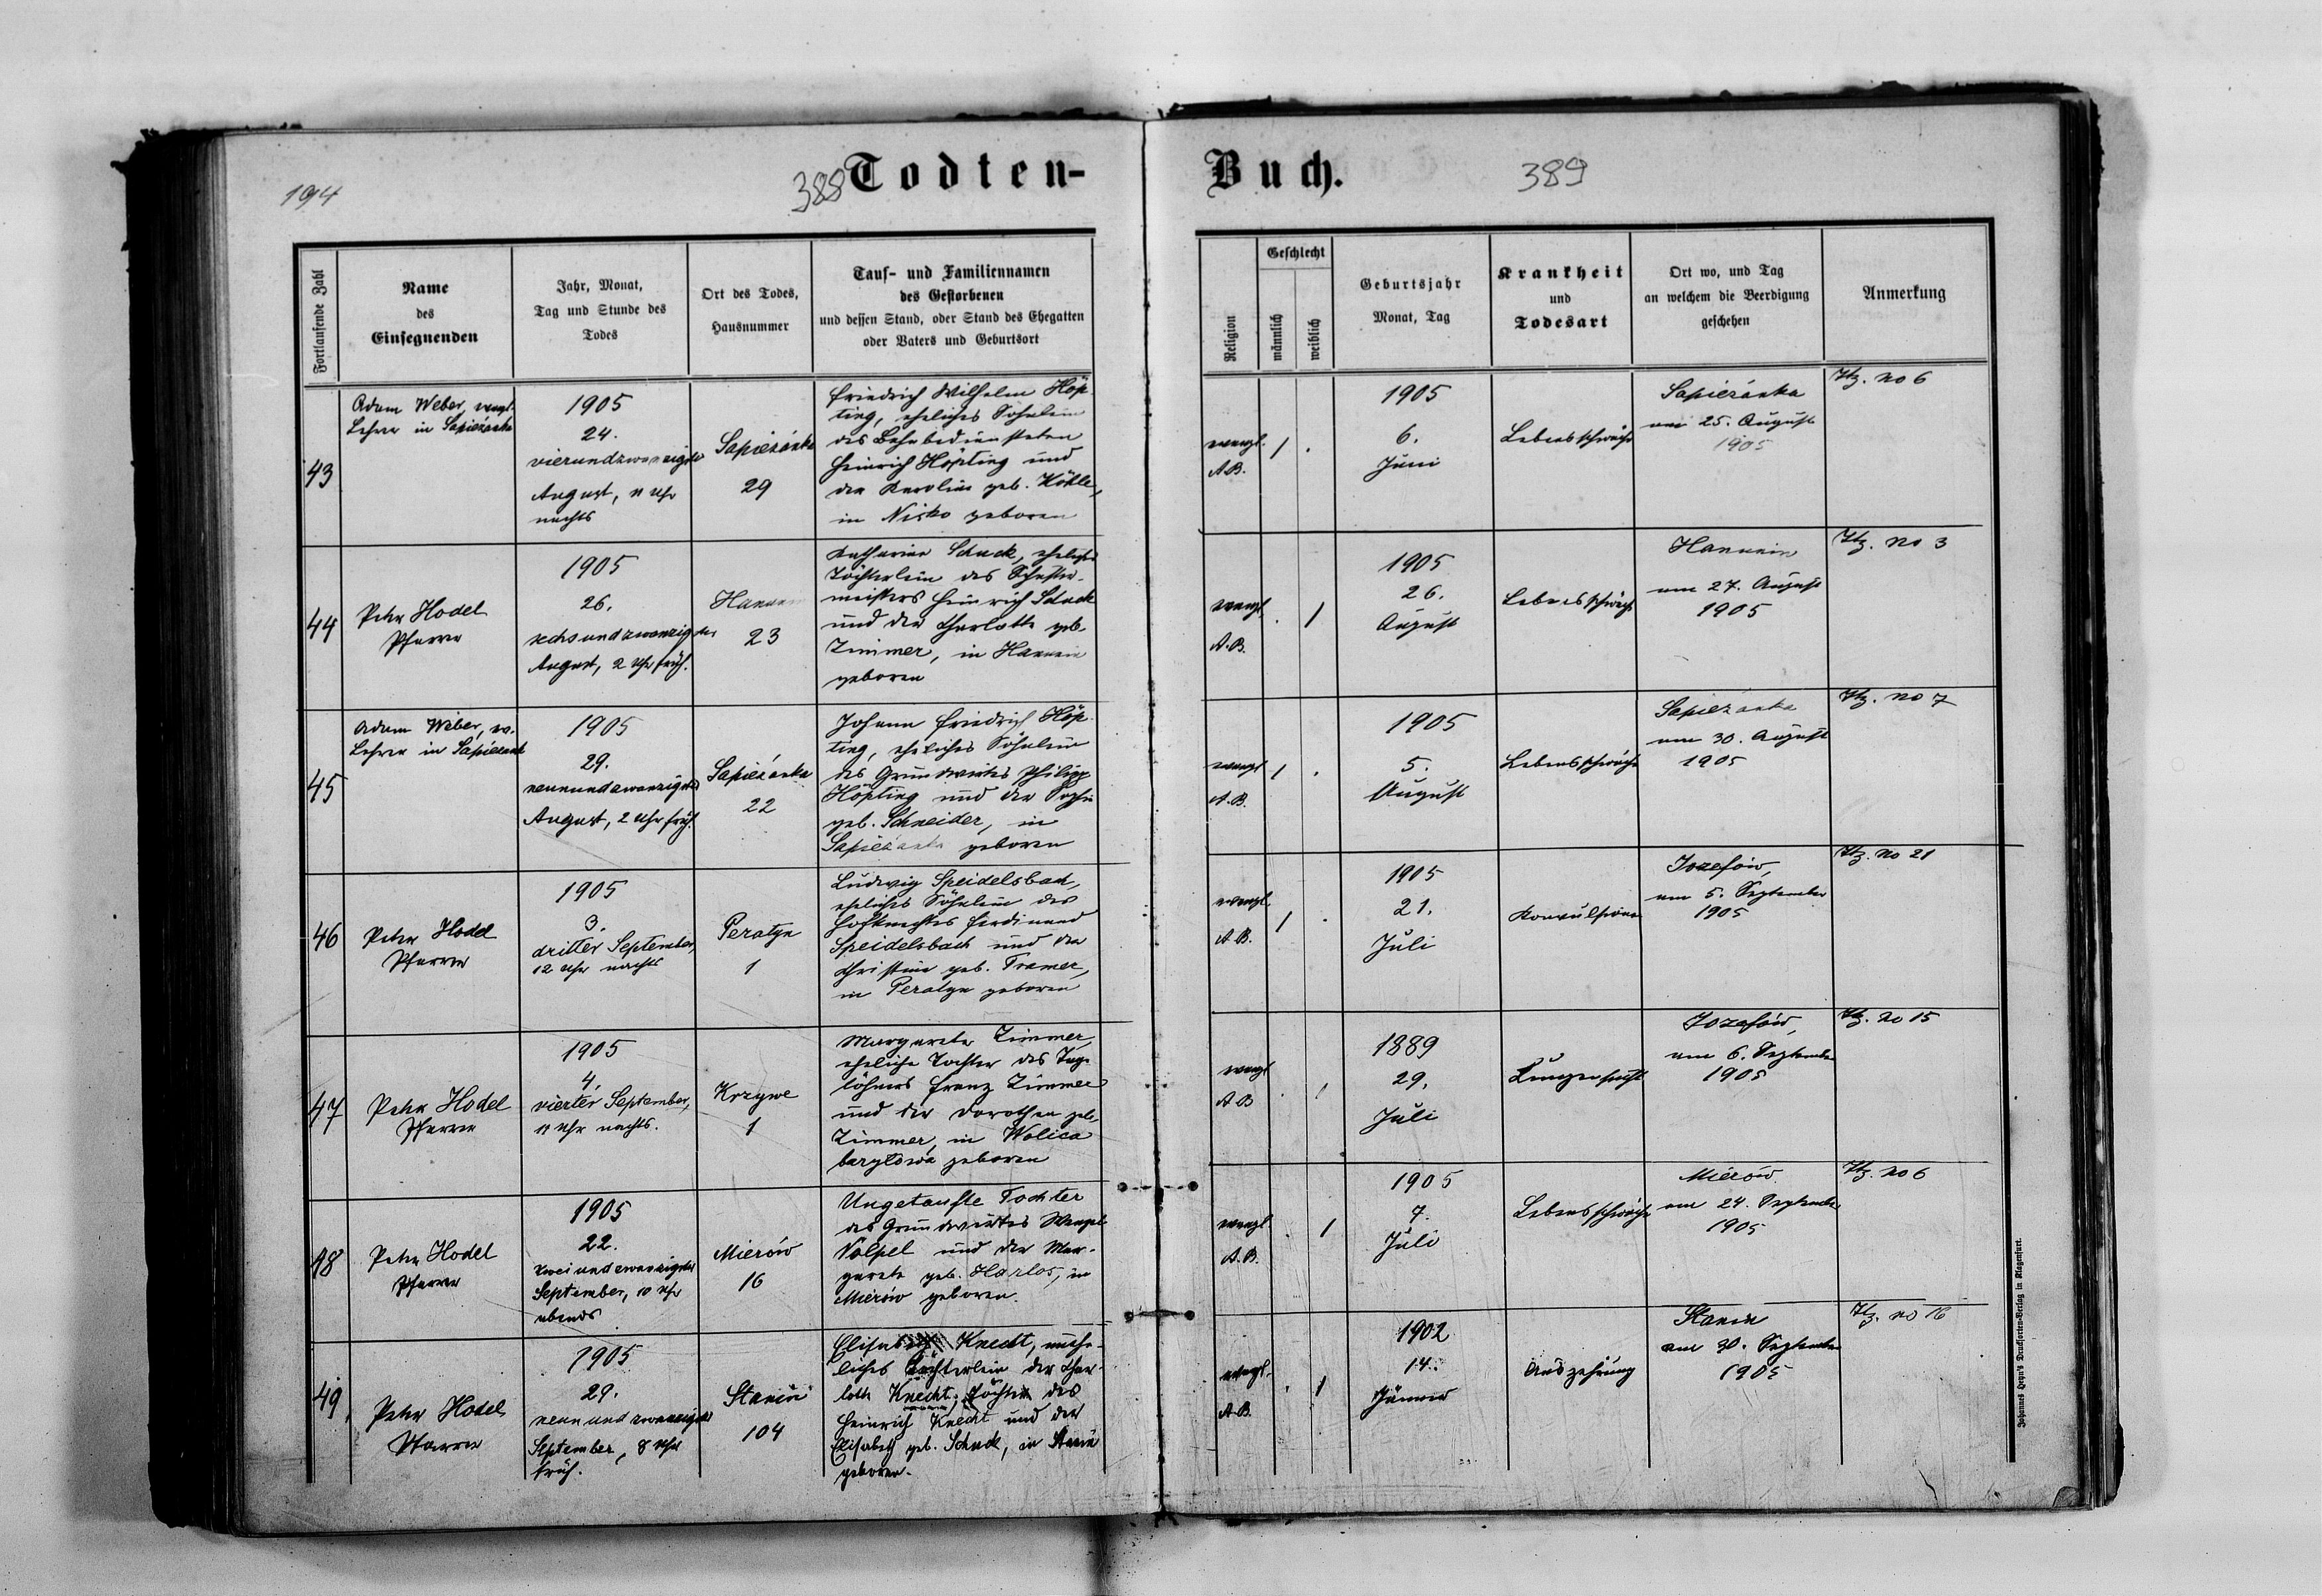 194
388 Todten-
Buch. 389
Fortlaufende Zahl
Name
des
Einsegnenden
Jahr, Monat,
Tag und Stunde des
Todes
Ort des Todes,
Hausnummer
Tauf- und Familiennamen
des Gestorbenen
und dessen Stand, oder Stand des Ehegatten
oder Vaters und Geburtsort
Religion
Geschlecht
männlich
weiblich
Geburtsjahr
Monat, Tag
Krankheit
und
Todesart
Ort wo, und Tag
an welchem die Beerdigung
geschehen
Anmerkung
43
Adam Weber, evangl.
Lehrer in Sapieżanka
1905
24.
vierundzwanzigster
August, 11 Uhr
nachts
Sapieżanka
29
Friedrich Wilhelm Höp-
ting, eheliches Söhnlein
des Bahnbediensteten
Heinrich Höpting und
der Karoline geb. Köhle,
in Nisko geboren
evangl.
A.B.
1 .
1905
6.
Juni
Lebensschwäche
Sapieżanka
am 25. August
1905
No 6
44
Peter Hodel
Pfarrer
1905
26.
sechsundzwanzigster
August, 2 Uhr früh.
Hanunin
23
Katharina Schuck, eheliches
Töchterlein des Schuster-
meisters Heinrich Schuck
und der Charlotte geb.
Zimmer, in Hanunin
geboren
evangl.
A.B.
. 1
1905
26.
August
Lebensschwäche
Hanunin
am 27. August
1905
No 3
45
Adam Weber, ev.
Lehrer in Sapieżanka
1905
29.
neunundzwanzigster
August, 2 Uhr früh.
Sapieżanka
22
Johann Friedrich Höp-
ting, eheliches Söhnlein
des Grundwirtes Philipp
Höpting und der Sophie
geb. Schneider, in
Sapieżanka geboren
evangl.
A.B.
1 .
1905
5.
August
Lebensschwäche
Sapieżanka
am 30. August
1905
No 7
46
Peter Hodel
Pfarrer
1905
3.
dritter September,
12 Uhr nachts
Peratyn
1
Ludwig Speidelsbach,
eheliches Söhnlein des
Hofknechtes Ferdinand
Speidelsbach und der
Christine geb. Framer,
in Peratyn geboren
evangl.
A.B.
1 .
1905
21.
Juli
Konvulsionen
Józefów,
am 5. September
1905
No 21
47
Peter Hodel
Pfarrer
1905
4.
vierter September,
11 Uhr nachts.
Krzywe
1
Margareta Zimmer,
eheliche Tochter des Tage-
löhners Franz Zimmer
und der Dorothea geb.
Zimmer, in Wolica
baryłowa geboren
evangl.
A.B.
. 1
1889
29.
Juli
Lungensucht
Józefów,
am 6. September
1905
No 15
48
Peter Hodel
Pfarrer
1905
22.
zweiundzwanzigster
September, 10 Uhr
abends
Mierów
16
Ungetaufte Tochter
des Grundwirtes Wenzel
Völpel und der Mar-
gareta geb. Harlos, in
Mierów geboren.
evangl.
A.B.
. 1
1905
7.
Juli
Lebensschwäche
Mierów
am 24. September
1905
No 6
49.
Peter Hodel
Pfarrer
1905
29.
neunundzwanzigster
September, 8 Uhr
früh.
Stanin
104
Elisabeth Knecht, unehe-
liches Töchterlein der Char-
lotte Knecht, Tochter des
Heinrich Knecht und der
Elisabeth geb. Schuck, in Stanin
geboren.
evangl.
A.B.
. 1
1902
14.
Jänner
Auszehrung
Stanin
am 30. September
1905
No 16
Johannes Heyn's Drucksorten-Verlag in Klagenfurt.